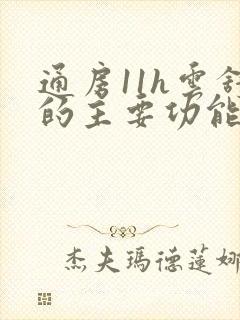 通房11h雲舒
的主要功能
杰夫瑪德蓮娜